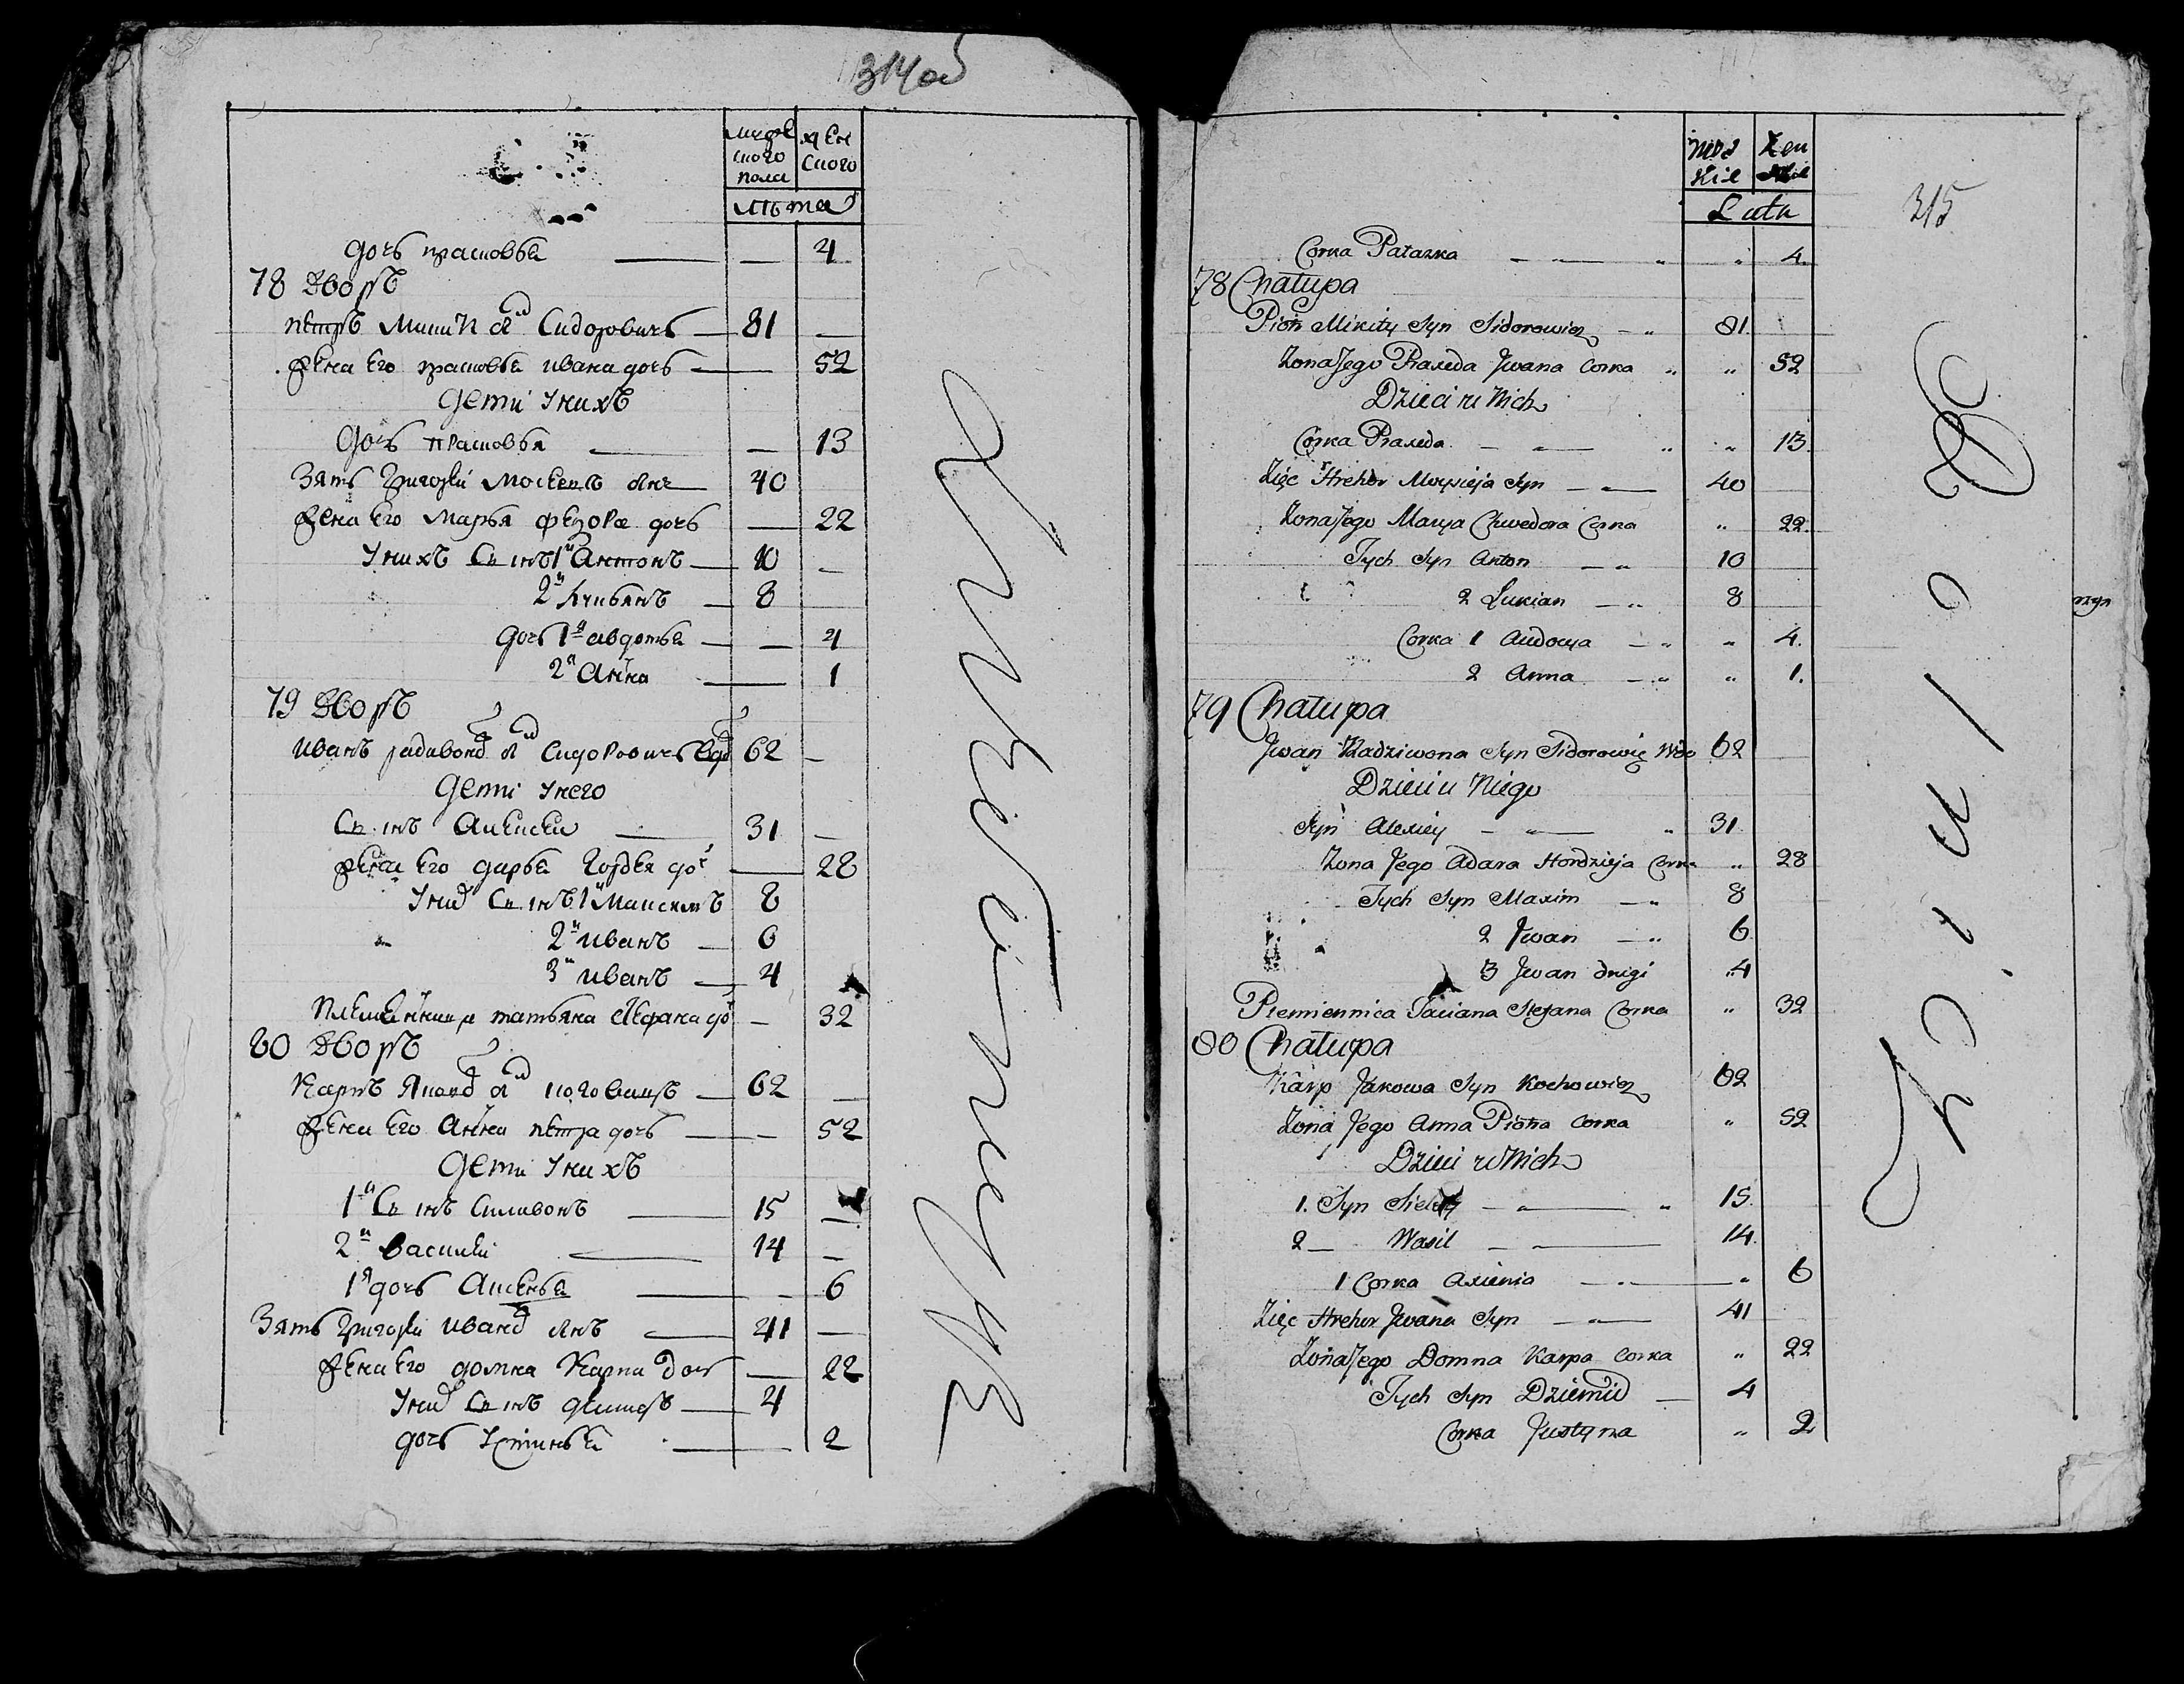 314об
мужескаго пола
женскаго
лѣта
дочь прасковья — — 4
78 Дворъ
петръ Мики сынъ Сидоровичъ — 81 —
жена Его прасковья ивана дочь — — 52
Дети У нихъ
Дочь прасковья — — 13
Зять Григорей Мосеевъ сынъ — 40
жена Его Марья федора дочь — 22
У нихъ Сынъ 1й Антонъ — 10 —
2й Лукьянъ — 8
дочь 1я авдотья — — 4
2я Анна — 1
79 Дворъ
иванъ радивона сынъ Сидоровичъ вдо 62 —
Дети У него
Сынъ Алексей — 31 —
жена Его дарья Гордея доч — 28
У них Сынъ 1й Максимъ 8
2й иванъ — 6
3й иванъ — 4
Племянница татьяна стефана до — 32
80 Дворъ
Карпъ Якова сынъ — 62 —
жена Его Анна петра дочь — — 52
Дети У нихъ
1й Сынъ Силивонъ — 15 —
2й Василей — 14 —
1я дочь Аксенья — — 6
Зять Григорей Ивана сынъ — 41 —
жена Его домна Карпа Доч — 22
У них Сынъ — 4
дочь Устинья — 2
315
Męz Kie
Zen skie
Lata
Corka Parazka — " — " " 4.
78 Chałupa
Piotr Mikity Syn Sidorowicz — " 81.
Zona Jego Praxeda Jwana Corka " " 52
Dzieci u Nich
Corka Praxeda — " — " " 13.
Zięc Hrehor Moysieja Syn — " — 40
Zona Jego Marya Chwedora Corka " 22.
Tych Syn Anton — " 10
2 Łukian — " 8
Corka 1 Audocya — " " 4.
2 Anna — " " 1.
79 Chałupa
Jwan Radziwona Syn Sidorowicz Wdo 62
Dzieci u Niego
Syn Alexiey — " — " 31.
Zona Jego Adara Hordzieja Corka " 28
Tych Syn Maxim — " 8
2 Jwan — " 6.
3 Jwan drugi " 4
Plemiennica Taciana Stefana Corka " 32
80 Chałupa
Karp Jakowa Syn Kochowicz 62
Zona Jego Anna Piotra Corka " 52
Dzieci u Nich
1. Syn — " — " 15.
2 — Wasil — " — 14.
1 Corka Axienia — " — " 6
Zięc Hrehor Jwana Syn — " — 41
Zona Jego Domna Karpa Corka " 22
Tych Syn Dziemid — 4
Corka Justyna " 2